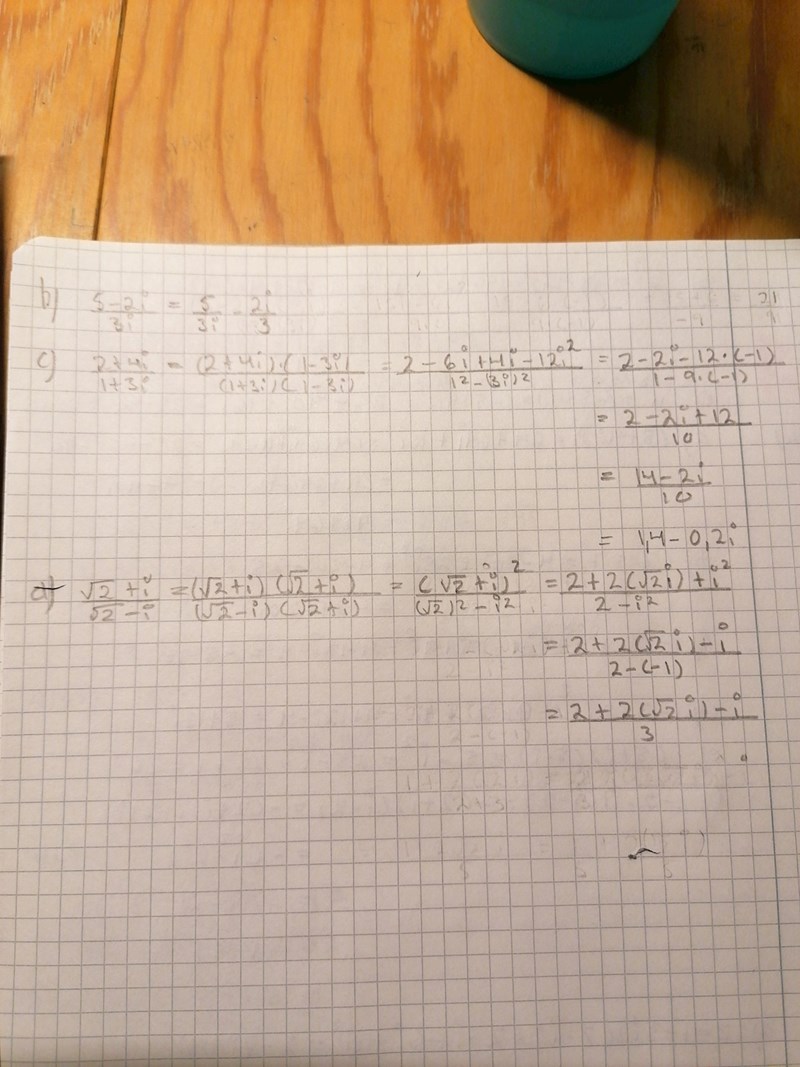 b) (5-2i)/(3i) = 5/(3i) - 2i/3
c) (2+4i)/(1+3i) = ((2+4i)·(1-3i))/((1+3i)(1-3i)) = (2-6i+4i-12i²)/(1²-(3i)²) = (2-2i-12·(-1))/(1-9·(-1))
= (2-2i+12)/10
= (14-2i)/10
= 1,4-0,2i
d) (√2+i)/(√2-i) = ((√2+i)(√2+i))/((√2-i)(√2+i)) = (√2+i)²/((√2)²-i²) = (2+2(√2i)+i²)/(2-i²)
= (2+2(√2i)-i)/(2-(-1))
= (2+2(√2i)-i)/3